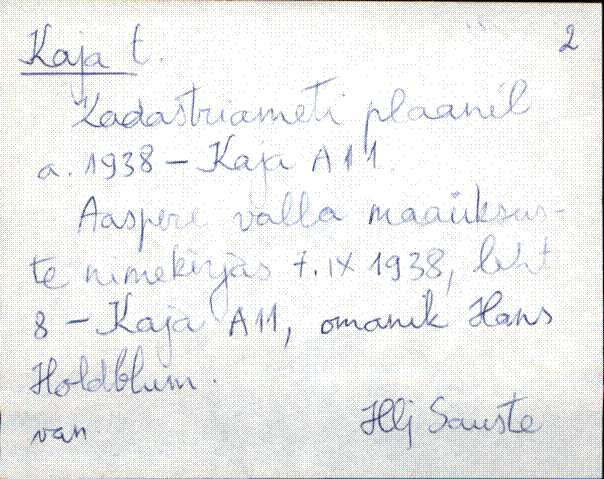 Kaja t. 2
Kadastriameti plaanil
a. 1938 – Kaja A11.
Aaspere valla maaüksus-
te nimekirjas 7. IX 1938, leht
8 – Kaja A11, omanik Hans
Holdblum.
van Hlj Sauste